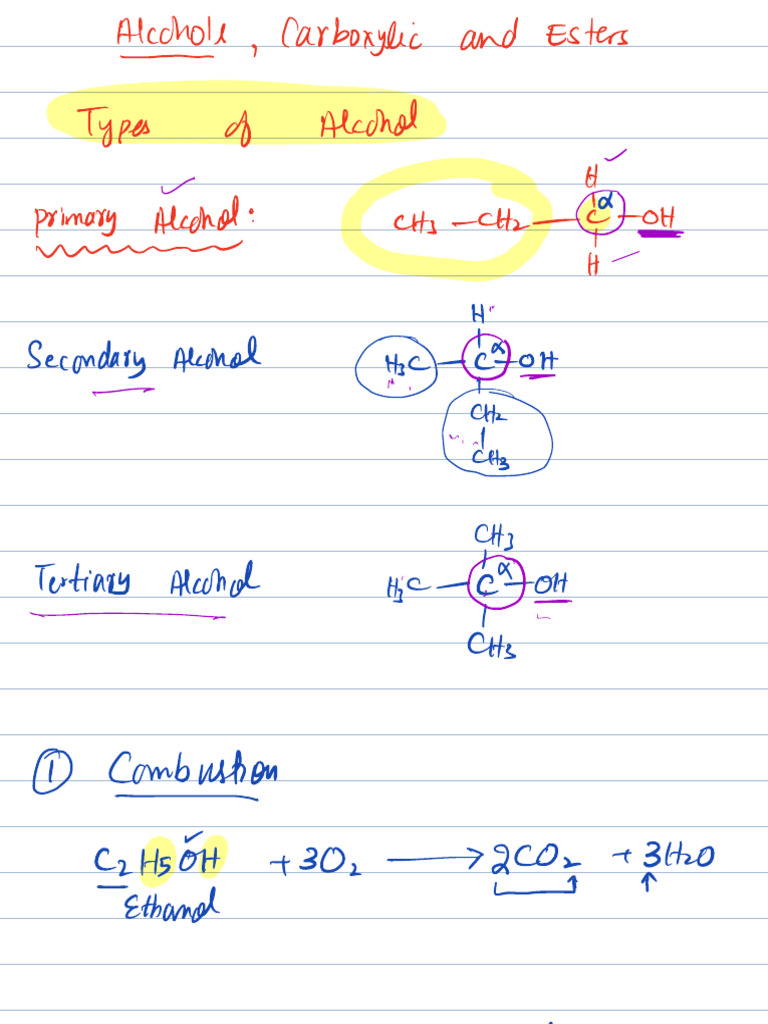 Alcohols, Carboxylic and Esters
Types of Alcohol
H
Primary Alcohol: CH3 — CH2 — C α — OH
H
H
Secondary Alcohol H3C — C α — OH
CH2
CH3
CH3
Tertiary Alcohol H3C — C α — OH
CH3
① Combustion
C2H5OH + 3O2 ⟶ 2CO2 + 3H2O
Ethanol